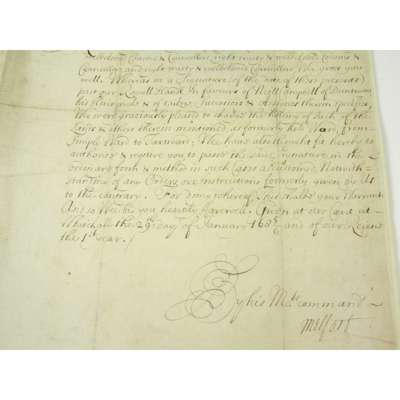 & Counsellor, right trusty & welbeloved Cousins &
Counsellors and right trusty & welbeloved Counsellors We greet you
well. Whereas in a Signature (of the date of these presents)
past our Royall Hand In favours of Neill Campbell of Duntroon
his Heirs male & of Entire Successors & Assignes therein specified,
We were graciously pleased to change the holding of such of the
Lands & others therein mentioned as formerly held Ward, from
Simple Ward to Taxtward; Wee have also thought fit hereby to
authorize & require you to passe the said Signature in the
ordinary form & method in such Cases accustomed, Notwith-
standing of any Orders or instructions formerly given by Us
to the contrary. For doing whereof this shalbe your Warrant
And so Wee bid you heartily farewell. Given at our Court at
Whitehall the 29th day of January 1685/6 and of our Reign
the 1st year.
By his Maties command
Melfort